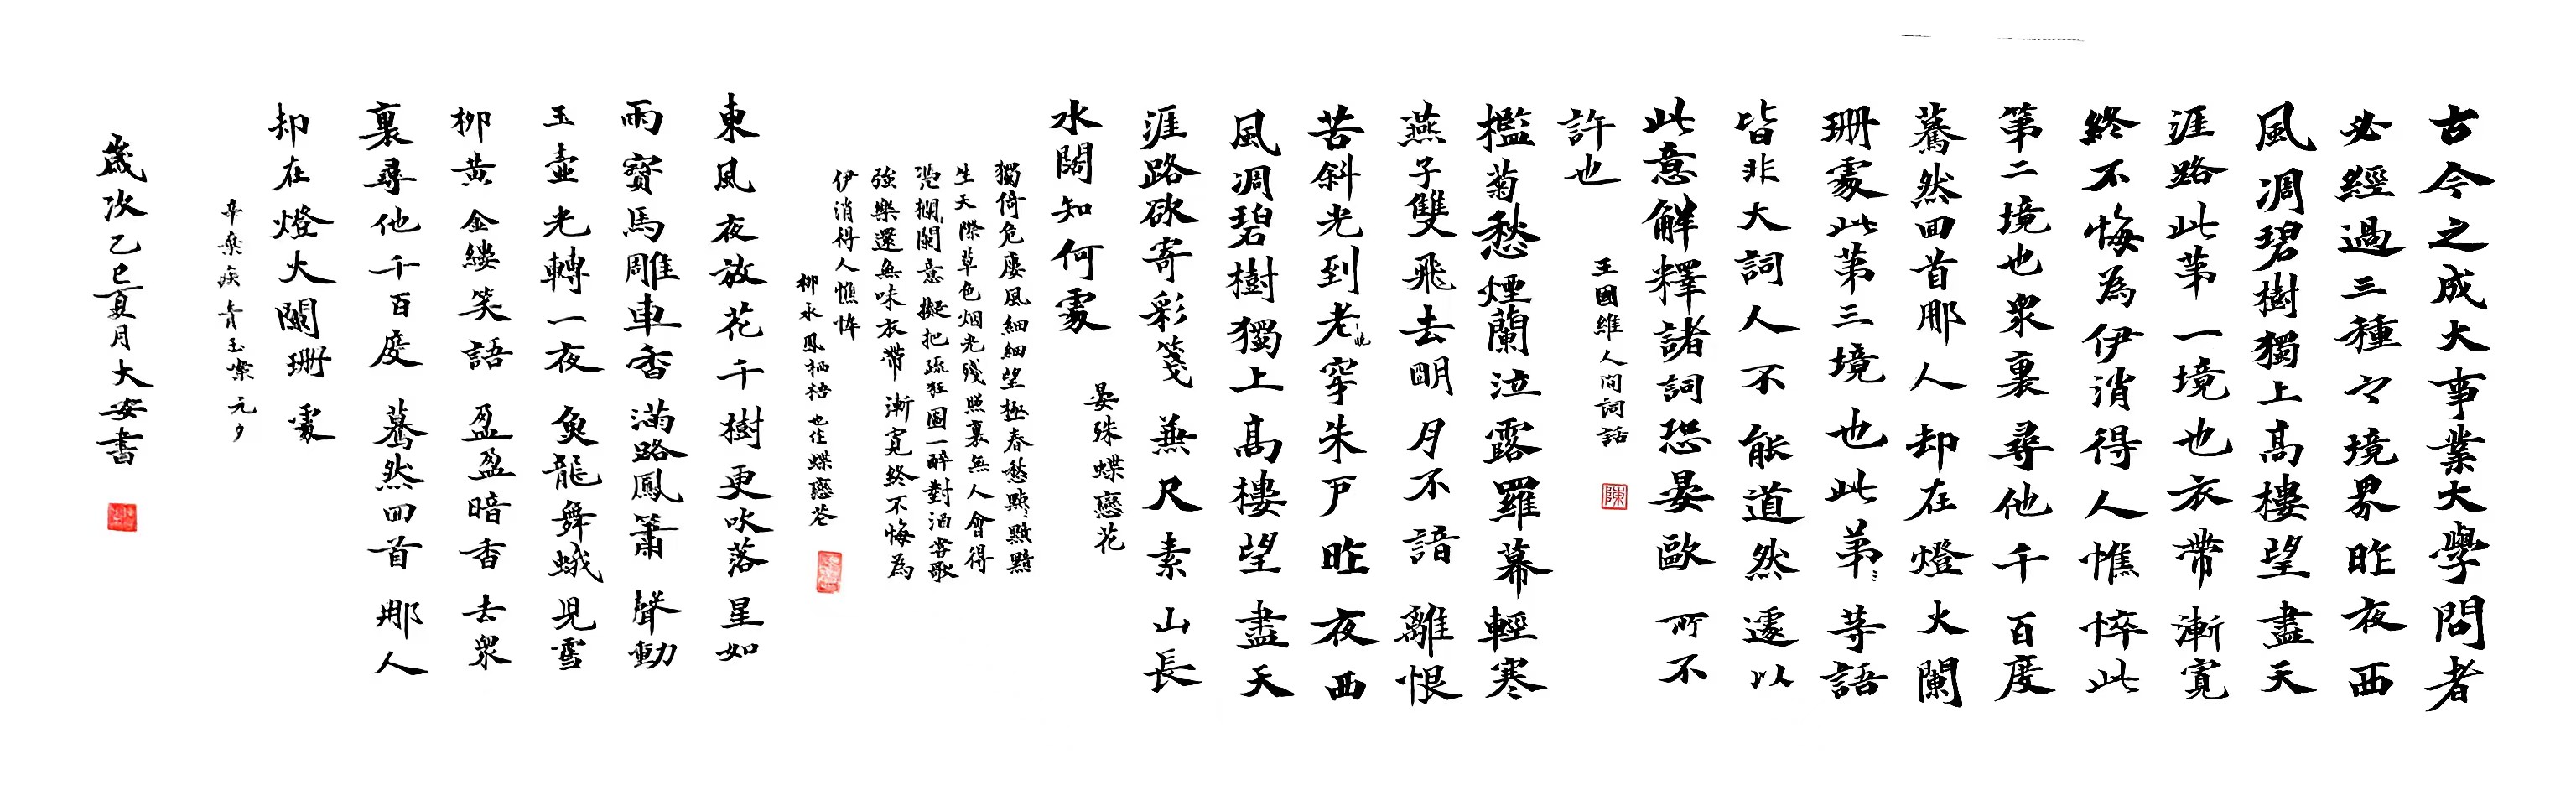 古今之成大事業大學問者
必經過三種之境界昨夜西
風凋碧樹獨上高樓望盡天
涯路此第一境也衣帶漸寬
終不悔為伊消得人憔悴此
第二境也眾裏尋他千百度
驀然回首那人却在燈火闌
珊處此第三境也此第〻等語
皆非大詞人不能道然遽以
此意解釋諸詞恐晏歐所不
許也
王國維人间詞話
陳
檻菊愁煙蘭泣露羅幕輕寒
燕子雙飛去明月不諳離恨
苦斜光到老〻曉穿朱戶昨夜西
風凋碧樹獨上高樓望盡天
涯路欲寄彩箋兼尺素山長
水闊知何處
晏殊蝶戀花
獨倚危廔風細細望極春愁黯〻黯黯
生天際草色烟光殘照裏無人會得
凭欄闌意擬把疏狂圖一醉對酒當歌
強樂還無味衣帶漸寬終不悔為
伊消得人憔悴
柳永鳳栖梧也作蝶戀花
東風夜放花千樹更吹落星如
雨寶馬雕車香滿路鳳簫聲動
玉壺光轉一夜魚龍舞蛾兒雪
柳黃金縷笑語盈盈暗香去眾
裏尋他千百度驀然回首那人
却在燈火闌珊處
辛棄疾青玉案元夕
歲次乙巳夏月大安書